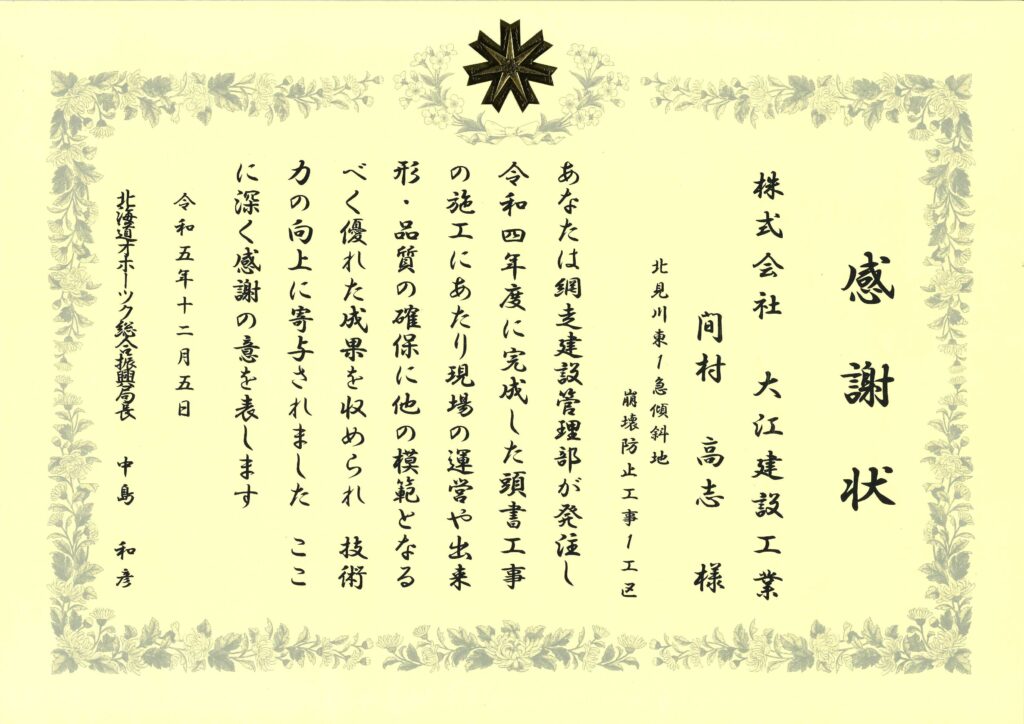 感謝状
株式会社 大江建設工業
間村 高志 様
北見川東1急傾斜地
崩壊防止工事1工区
あなたは網走建設管理部が発注し
令和四年度に完成した頭書工事
の施工にあたり現場の運営や出来
形・品質の確保に他の模範となる
べく優れた成果を収められ 技術
力の向上に寄与されました ここ
に深く感謝の意を表します
令和五年十二月五日
北海道オホーツク総合振興局長 中島 和彦